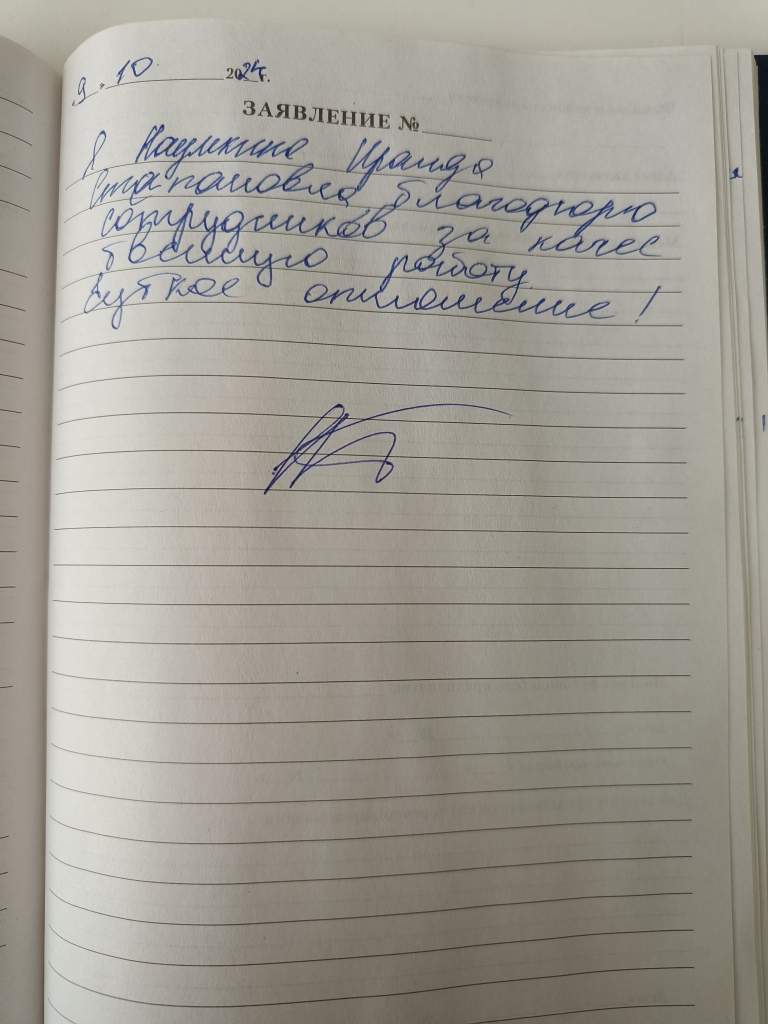 9. 10. 2024г.
ЗАЯВЛЕНИЕ №
Я Наумкина Ираида
Степановна благодюрю
сотрудников за качес
твенную работу
Чуткое отношение!